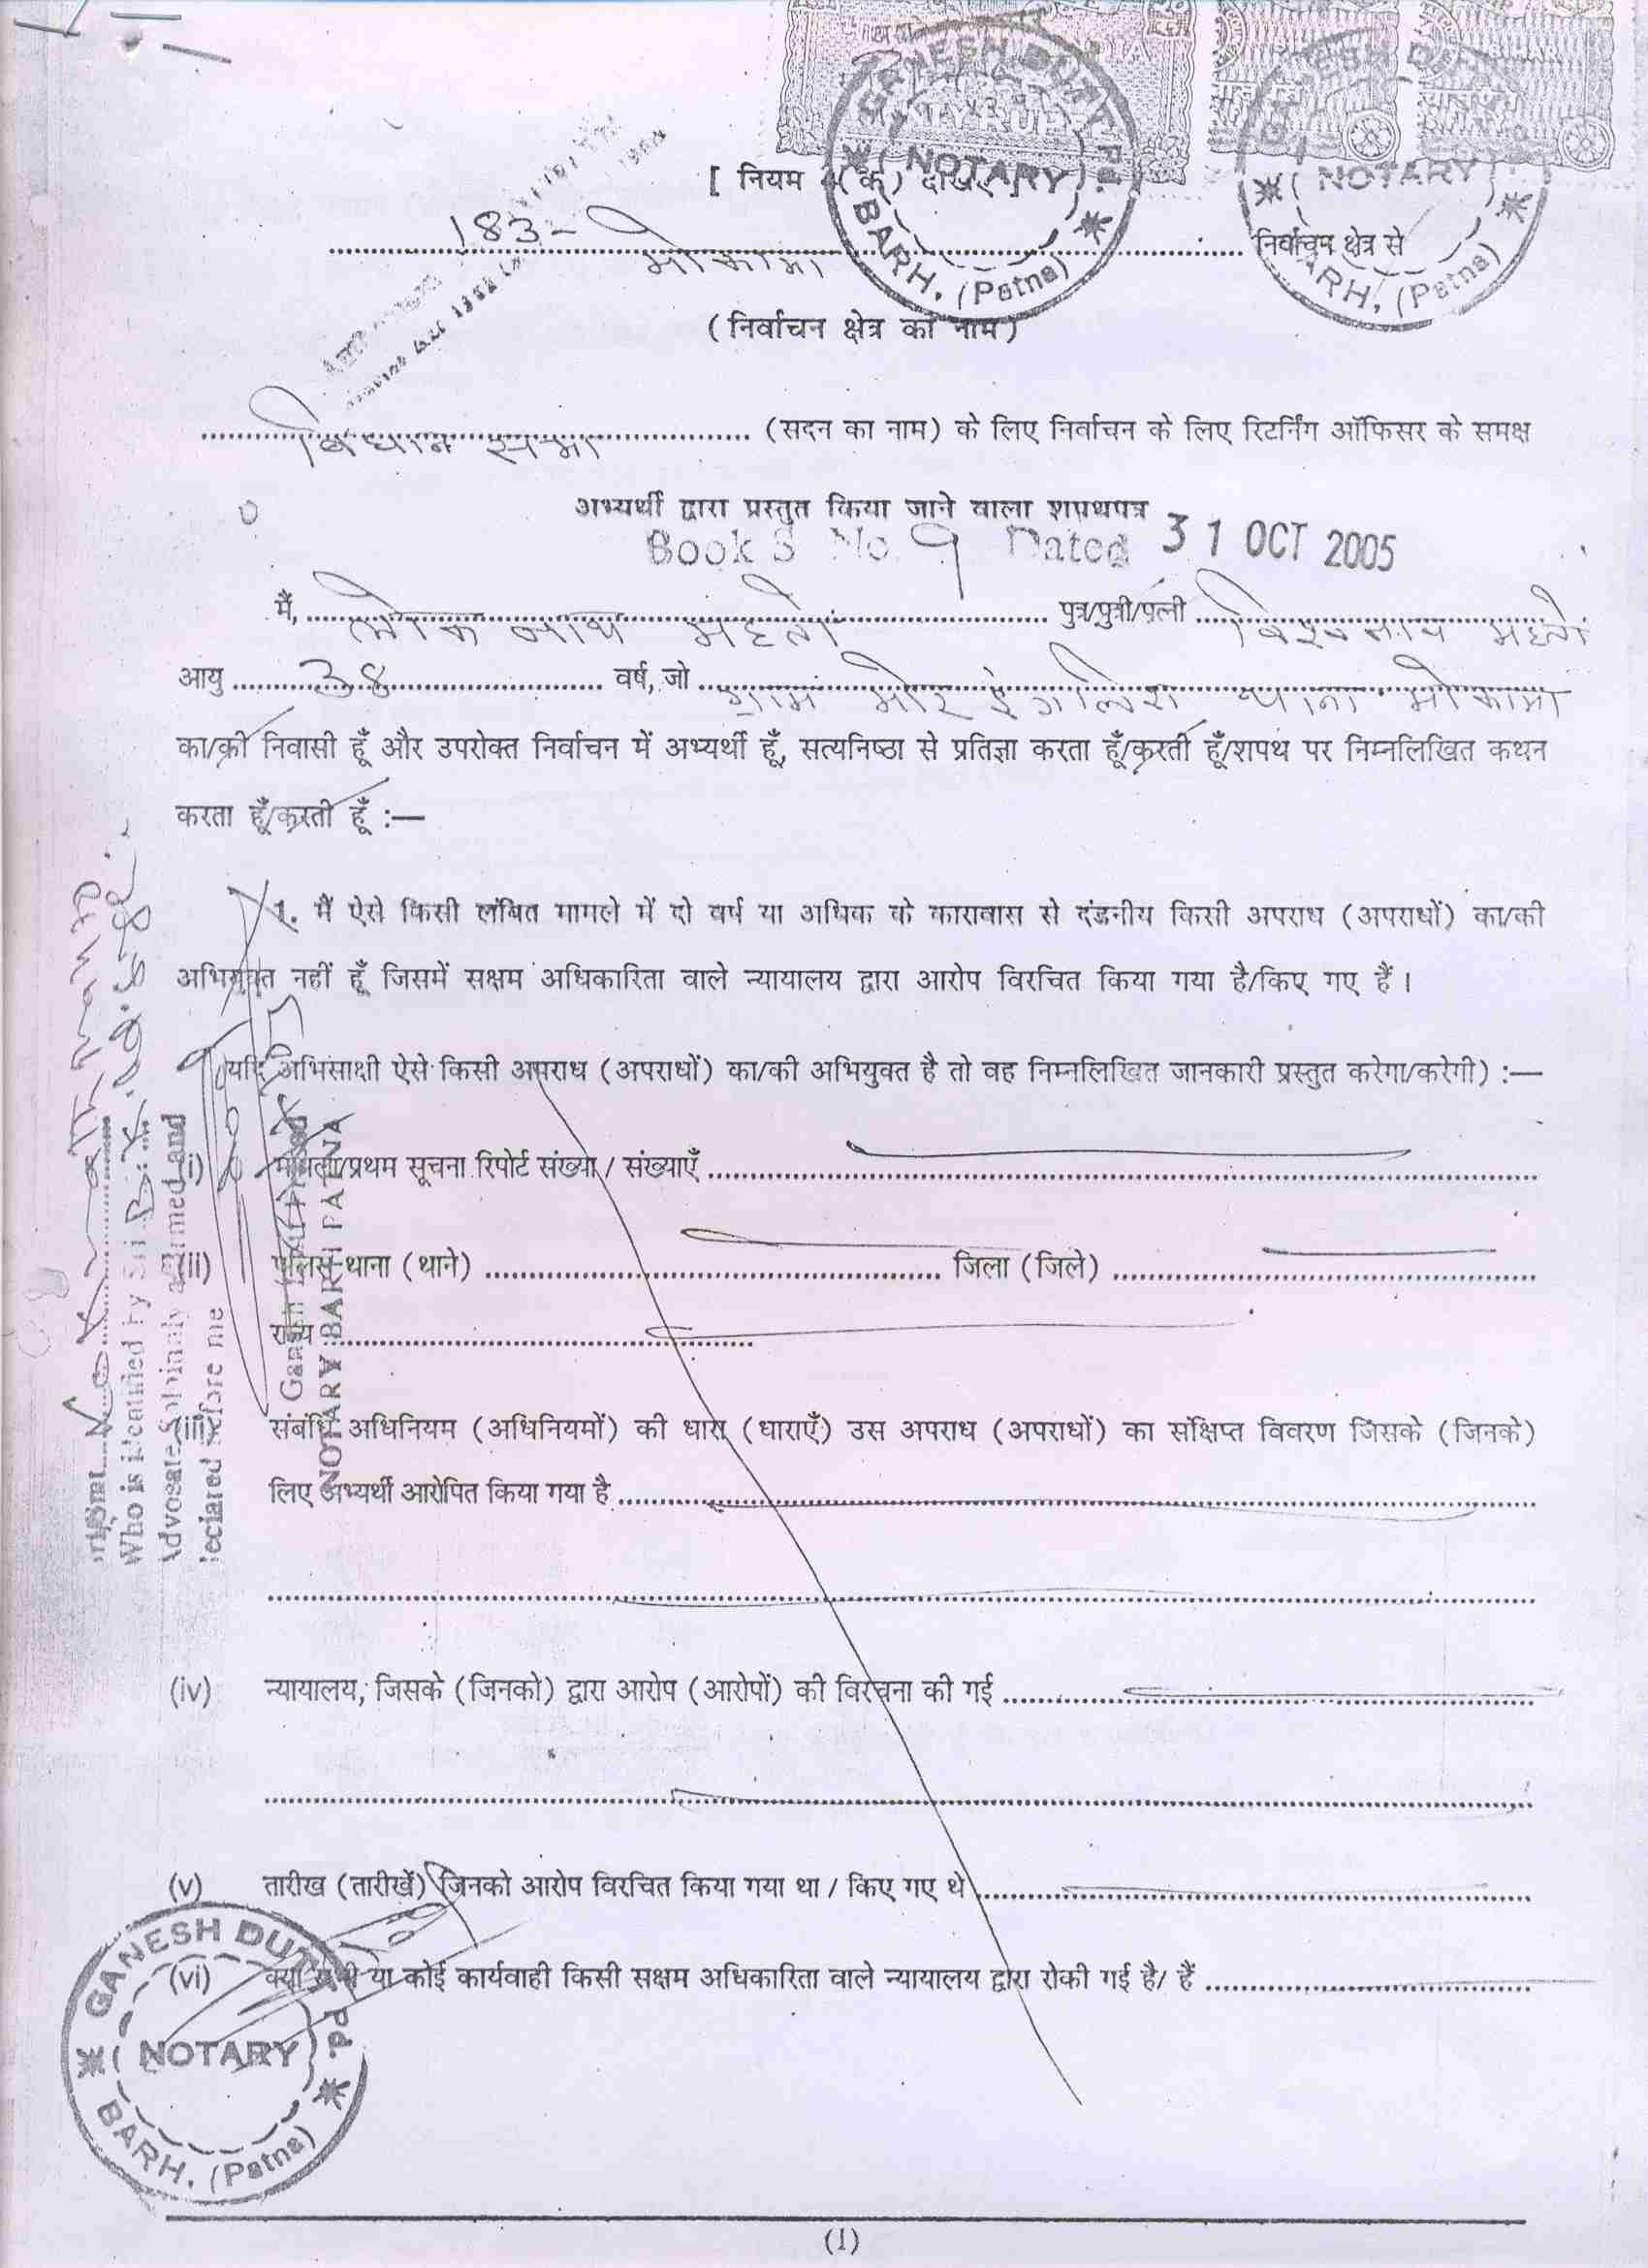 [ नियम 4 (क) देखिए ]
183- मोकामा निर्वाचन क्षेत्र से
(निर्वाचन क्षेत्र का नाम)
विधान सभा (सदन का नाम) के लिए निर्वाचन के लिए रिटर्निंग ऑफिसर के समक्ष
अभ्यर्थी द्वारा प्रस्तुत किया जाने वाला शपथपत्र
Book S No. 9 Dated 31 OCT 2005
मैं, महतो पुत्र/पुत्री/पत्नी विश्वनाथ महतो
आयु 38 वर्ष, जो ग्राम मोर थाना मोकामा
का/की निवासी हूँ और उपरोक्त निर्वाचन में अभ्यर्थी हूँ, सत्यनिष्ठा से प्रतिज्ञा करता हूँ/करती हूँ/शपथ पर निम्नलिखित कथन
करता हूँ/करती हूँ :—
1. मैं ऐसे किसी लंबित मामले में दो वर्ष या अधिक के कारावास से दंडनीय किसी अपराध (अपराधों) का/की
अभियुक्त नहीं हूँ जिसमें सक्षम अधिकारिता वाले न्यायालय द्वारा आरोप विरचित किया गया है/किए गए हैं ।
(यदि अभिसाक्षी ऐसे किसी अपराध (अपराधों) का/की अभियुक्त है तो वह निम्नलिखित जानकारी प्रस्तुत करेगा/करेगी) :—
(i) मामला/प्रथम सूचना रिपोर्ट संख्या / संख्याएँ
(ii) पुलिस थाना (थाने) जिला (जिले)
राज्य
(iii) संबंधि अधिनियम (अधिनियमों) की धारा (धाराएँ) उस अपराध (अपराधों) का संक्षिप्त विवरण जिसके (जिनके)
लिए अभ्यर्थी आरोपित किया गया है
(iv) न्यायालय, जिसके (जिनको) द्वारा आरोप (आरोपों) की विरचना की गई
(v) तारीख (तारीखें) जिनको आरोप विरचित किया गया था / किए गए थे
(vi) क्या सभी या कोई कार्यवाही किसी सक्षम अधिकारिता वाले न्यायालय द्वारा रोकी गई है/ हैं
(1)
GANESH DUTT P.P.
NOTARY
BARH. (Patna)
GANESH DUTT P.P.
NOTARY
BARH. (Patna)
NOTARY
BARH. (Patna)
Who is identified by Sri
Advocate Solemnly affirmed and
declared before me
NOTARY BARH PATNA